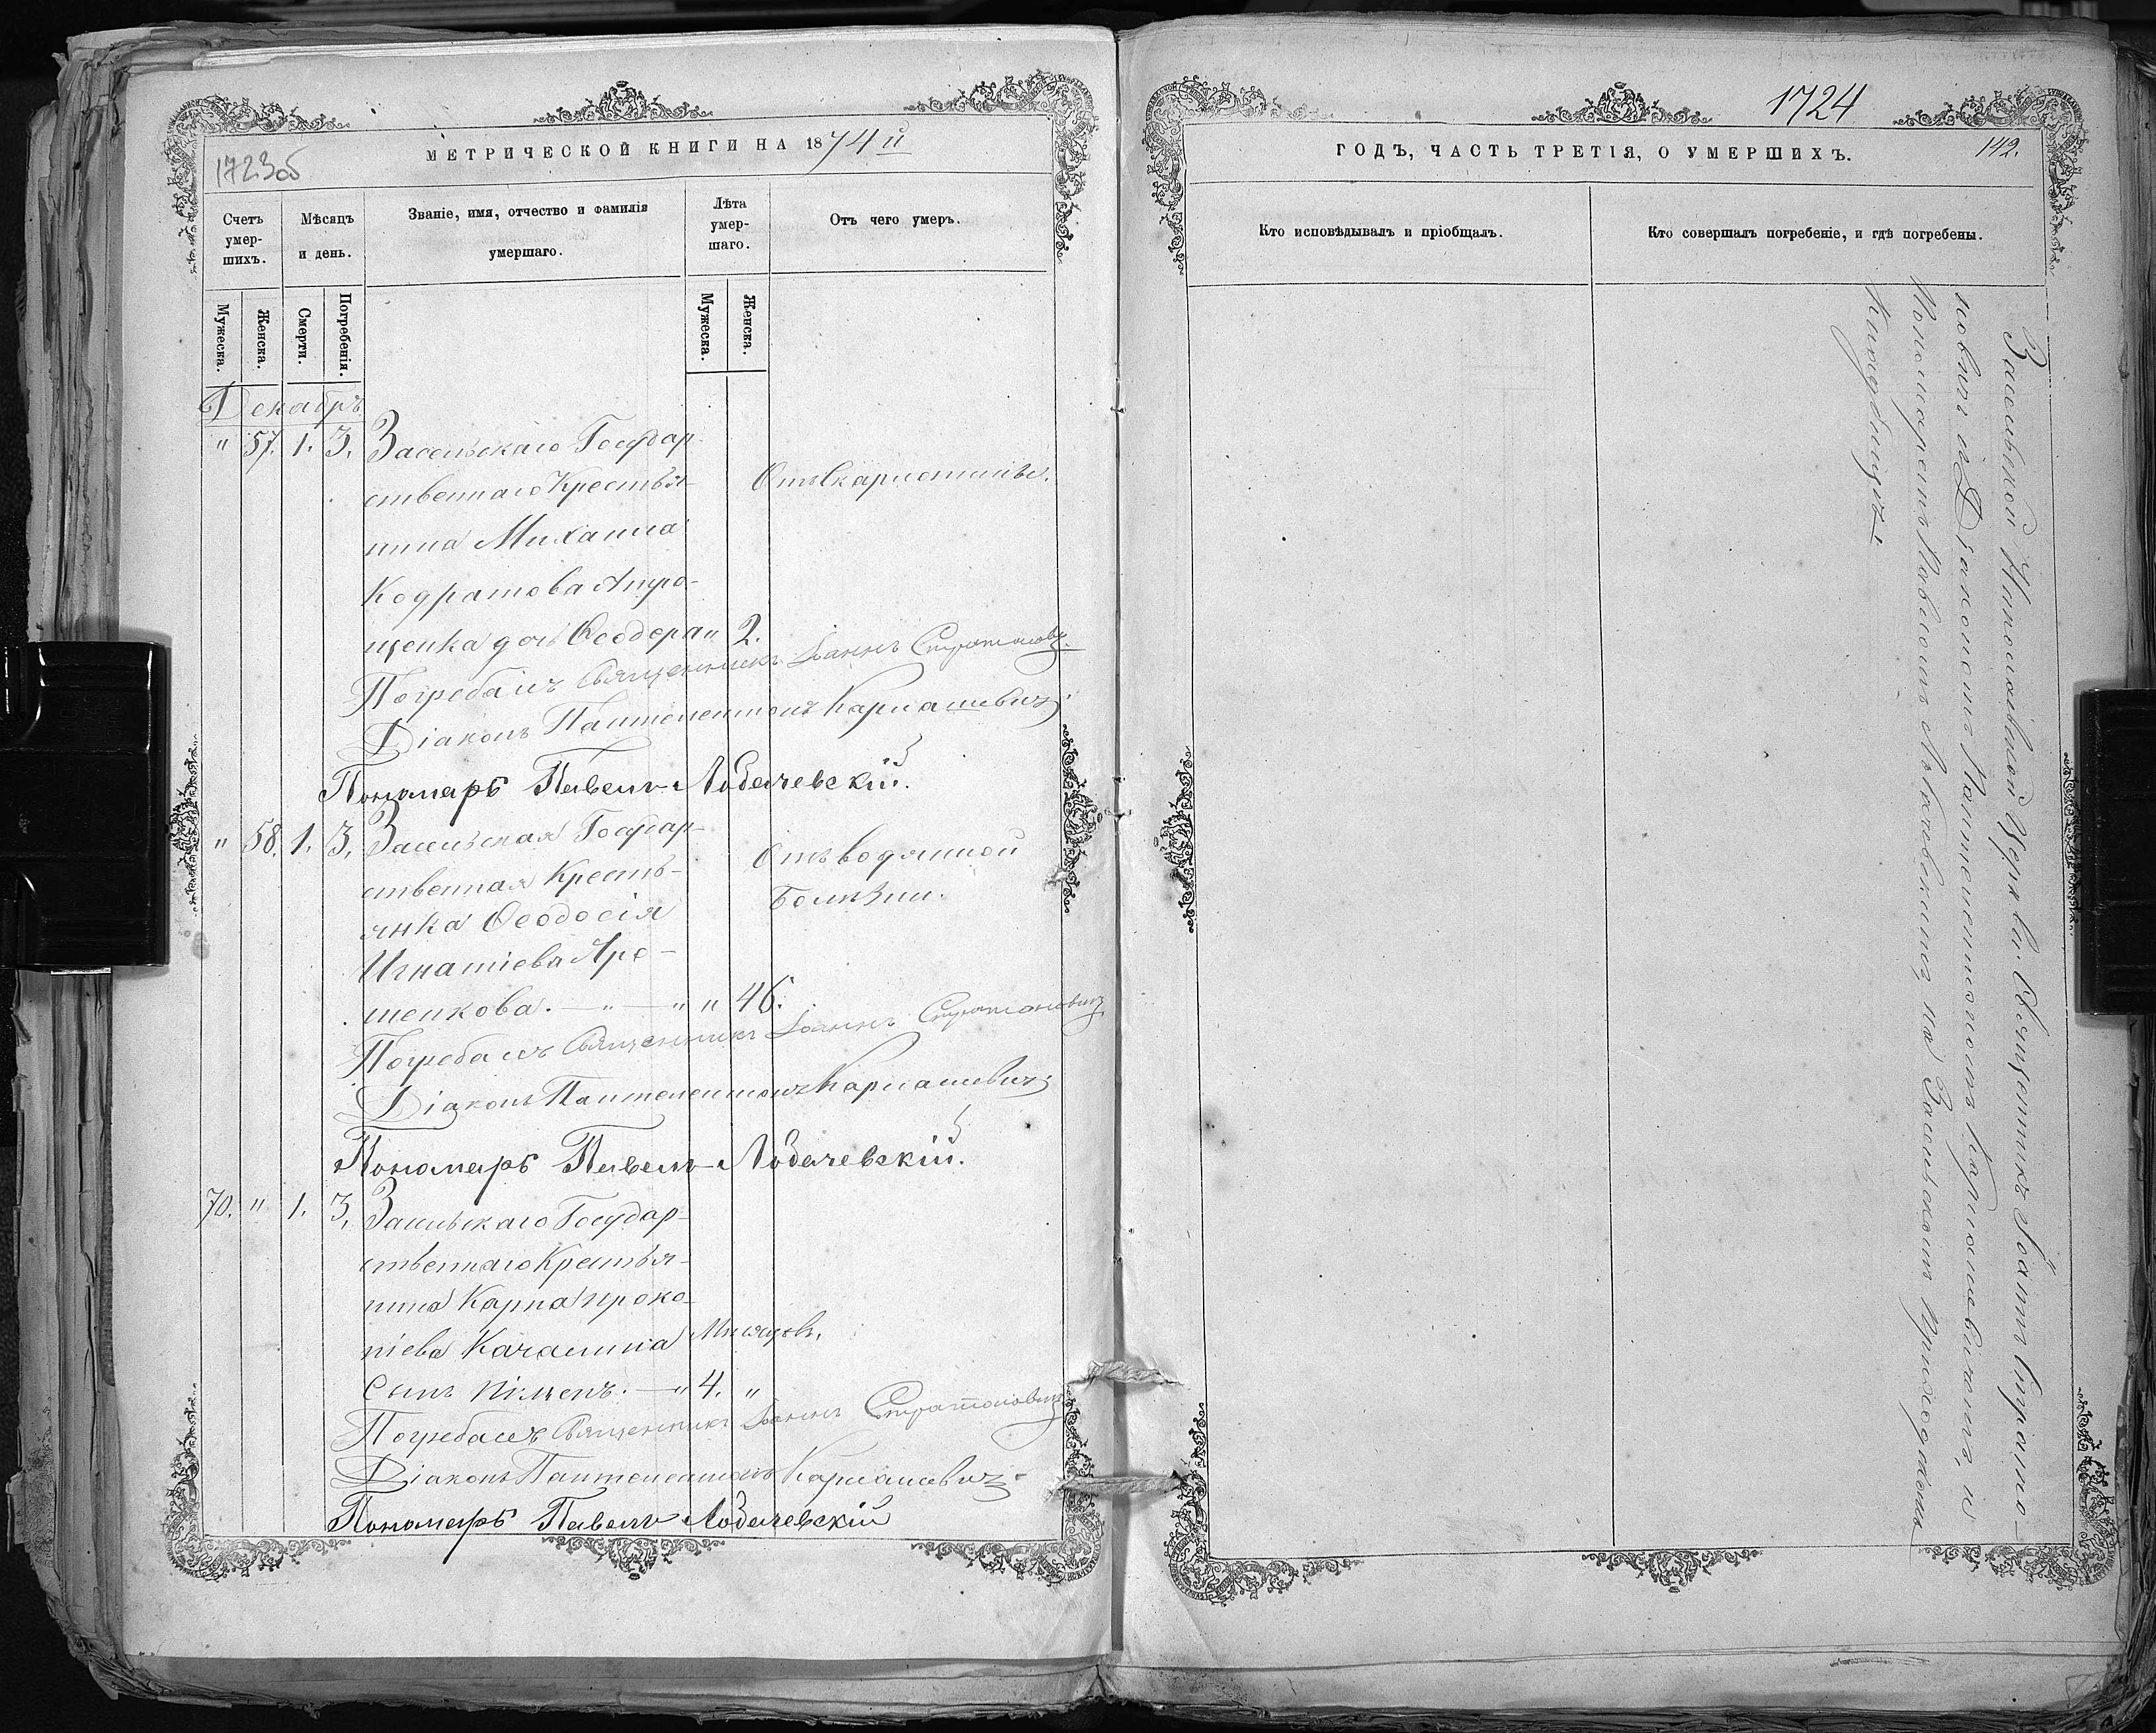 1723об
МЕТРИЧЕСКОЙ КНИГИ НА 1874й
Счетъ умер-шихъ.
Мѣсяцъ и день.
Званіе, имя, отчество и фамилія умершаго.
Лѣта умер-шаго.
Отъ чего умеръ.
Мужеска.
Женска.
Смерти.
Погребенія.
Мужеска.
Женска.
Декабрь
" 57. 1. 3. Засельскаго Государ-
ственнаго Крестья-
нина Михаила
Кодратова
щенка дочь Ѳеодора " 2.
Отъ Скарлотины.
Погребалъ Священникъ Іоаннъ Стратоновъ
Діаконъ Пантелеимонъ Кармашевичъ
Пономарь Павелъ Лобачевскій.
" 58. 1. 3. Засельская Государ-
ственная Кресть-
янка Ѳеодосія
Игнатіева Яре-
шенкова. — " — " " 46.
Отъ водянной
болѣзни.
Погребалъ Священникъ Іоаннъ Стратоновичъ
Діаконъ Пантелеимонъ Кармашевичъ
Пономарь Павелъ Лобачевскій.
70. " 1. 3. Засельскаго Государ-
ственнаго Крестья-
нина Карпа Проко-
піева Качалина Мѣсяцовъ.
Сынъ Пименъ. — " 4. "
Погребалъ Священникъ Іоаннъ Стратоновичъ
Діаконъ Пантелеимонъ Кармашевичъ
Пономарь Павелъ Лобачевскій
1724
ГОДЪ, ЧАСТЬ ТРЕТІЯ, О УМЕРШИХЪ.
142.
Кто исповѣдывалъ и пріобщалъ.
Кто совершалъ погребеніе, и гдѣ погребены.
Засельской Николаевской Церкви. Священникъ Іоаннъ Страто-
новичъ съ Діакономъ Пантелеимономъ Кармашевичемъ, и
Пономаремъ Павломъ Лобачевскимъ, на Засельскомъ Приходскомъ
Кладбищѣ.